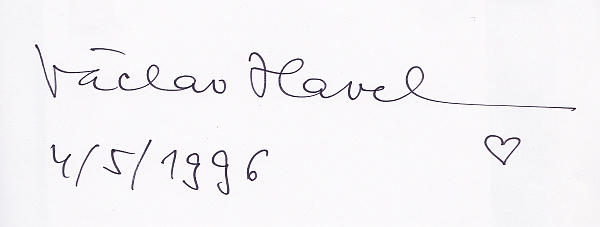 Václav Havel
4/5/1996 ♡